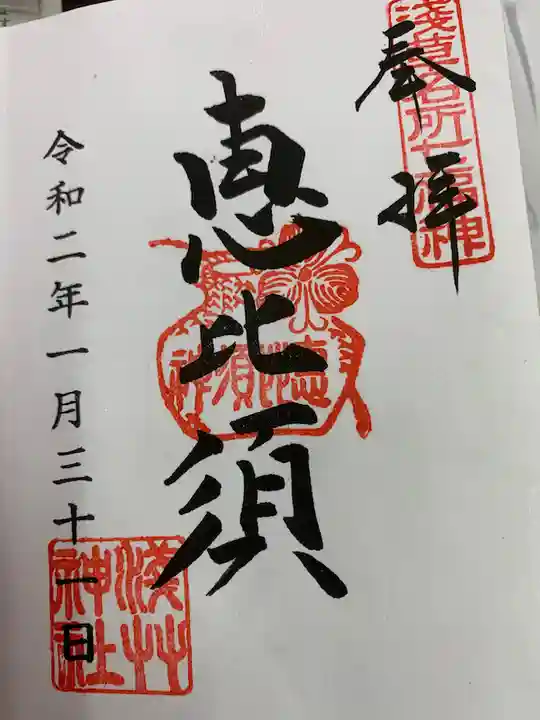 奉拝
淺草名所七福神
恵比須
恵比須神
令和二年一月三十一日
淺草神社